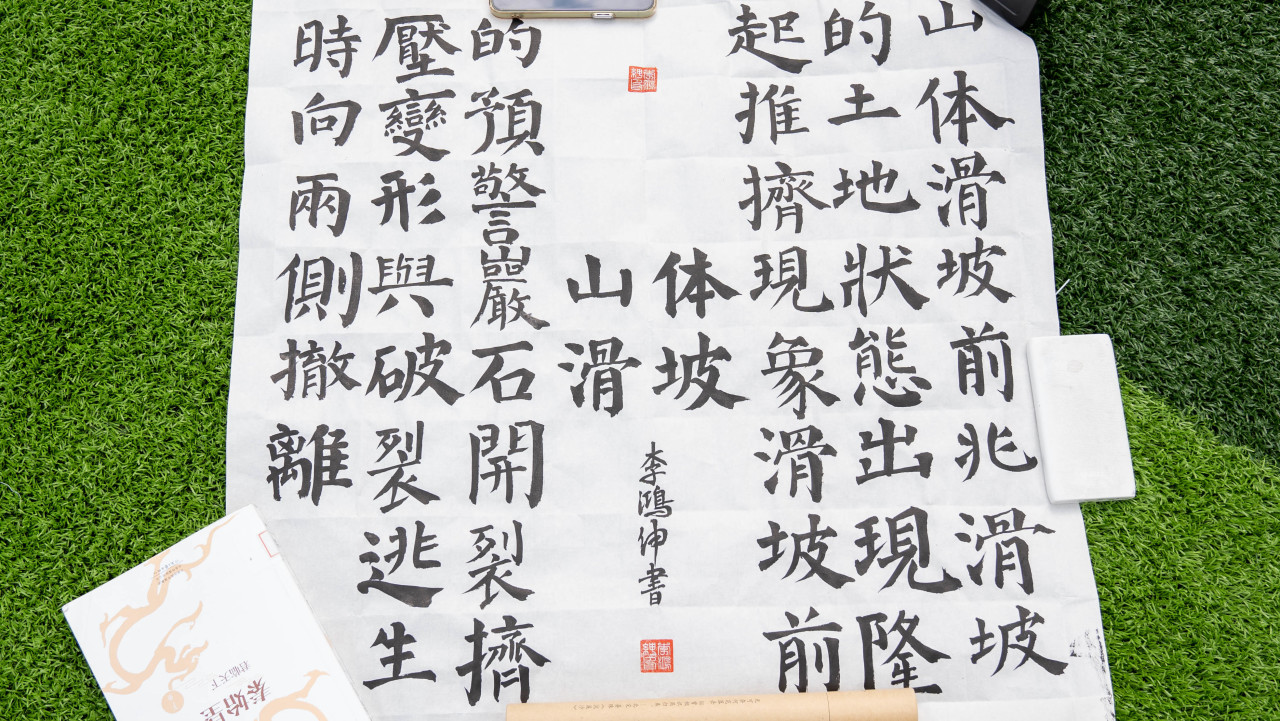 山体滑坡前兆滑坡
的土地狀態出現隆
起推擠現象滑坡前
山体
滑坡
李鴻伸書
的預警巖石開裂擠
壓變形與破裂逃生
時向兩側撤離
秦始皇
君臨天下